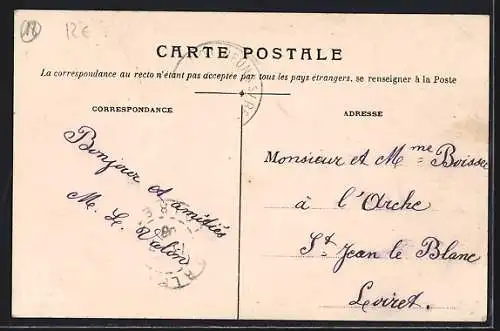 12E
CARTE POSTALE
La correspondance au recto n'étant pas acceptée par tous les pays étrangers, se renseigner à la Poste
CORRESPONDANCE
ADRESSE
Bonjour et amitiés
M. L.
Monsieur et Mme Boissec
à l'Arche
St Jean le Blanc
Loiret.